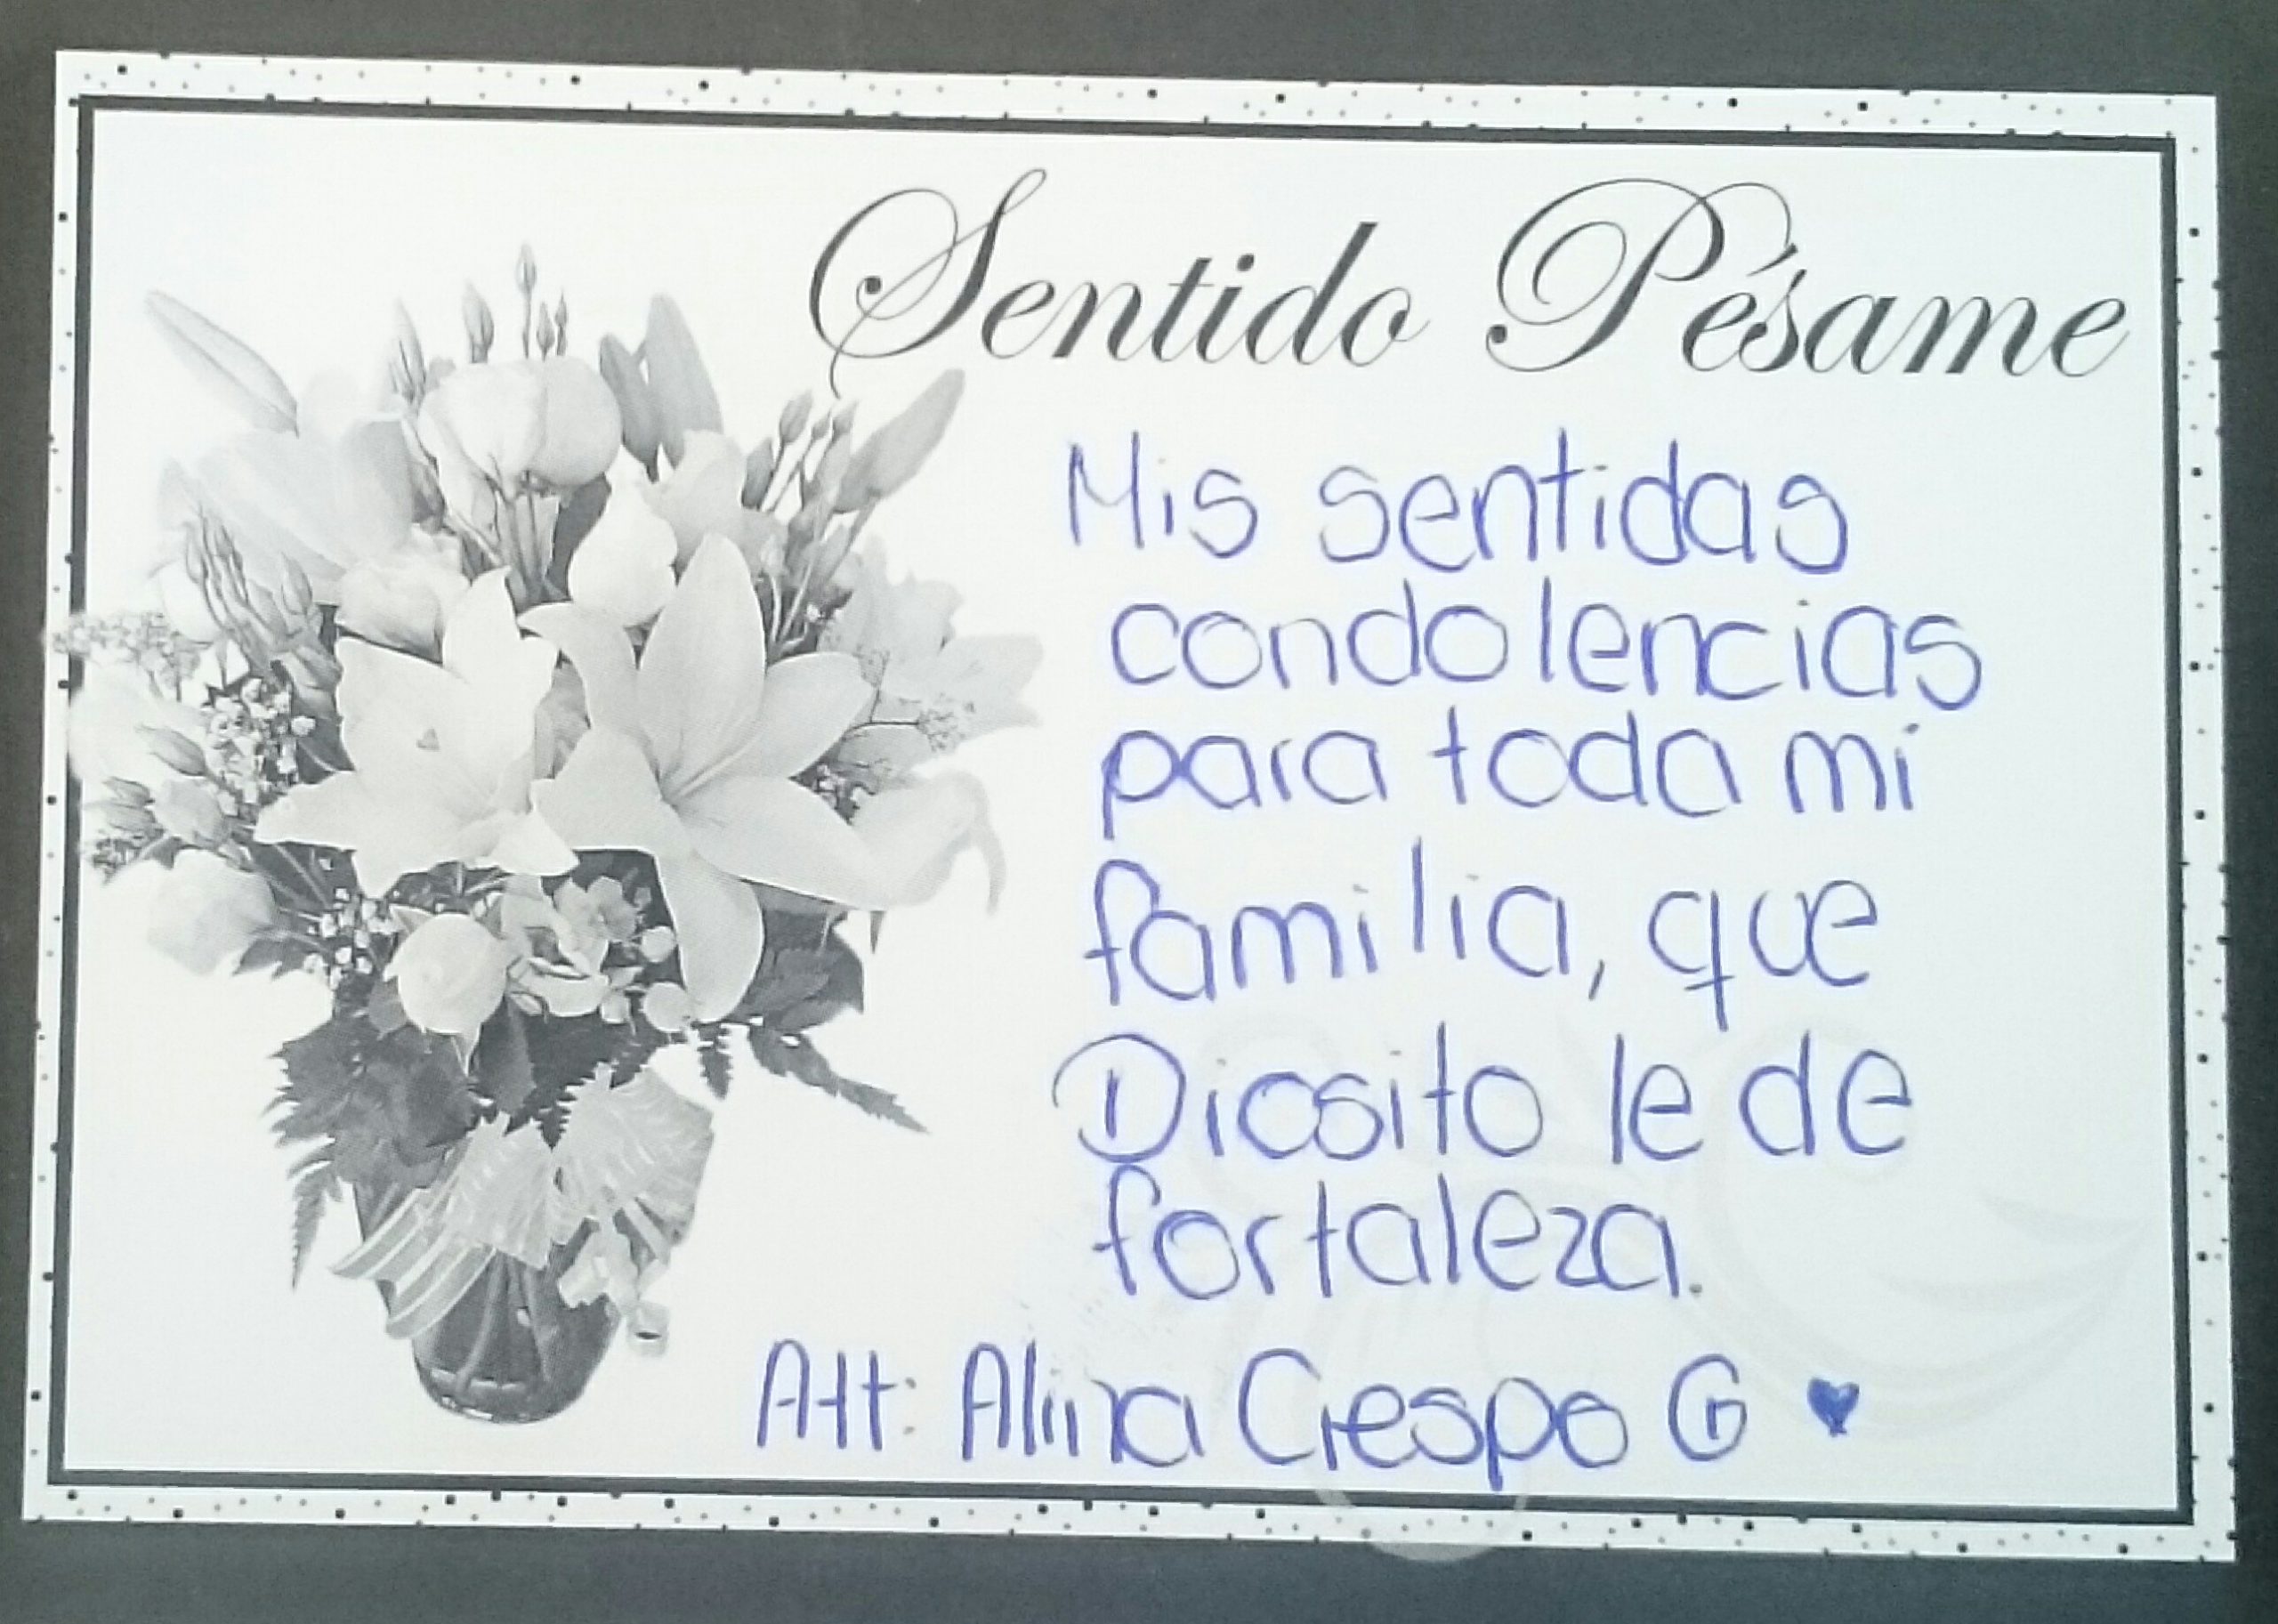 Sentido Pésame
Mis sentidas
condolencias
para toda mi
familia, que
Diosito le de
fortaleza.
Att: Crespo G ♥